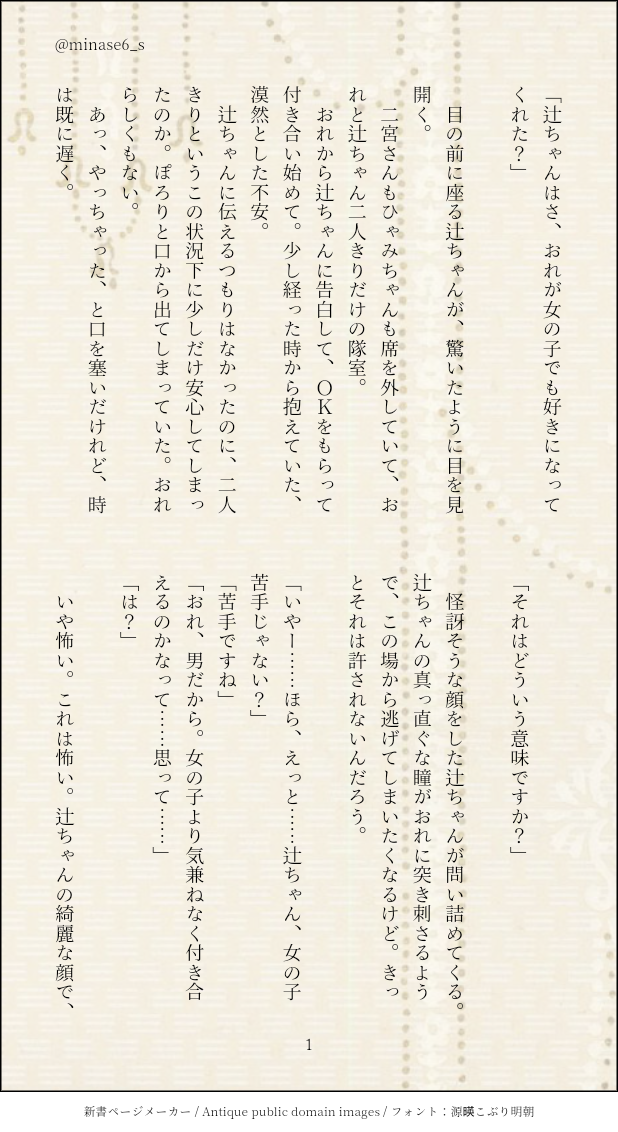 @minase6_s
「辻ちゃんはさ、おれが女の子でも好きになって
くれた？」
目の前に座る辻ちゃんが、驚いたように目を見
開く。
二宮さんもひゃみちゃんも席を外していて、お
れと辻ちゃん二人きりだけの隊室。
おれから辻ちゃんに告白して、ＯＫをもらって
付き合い始めて。少し経った時から抱えていた、
漠然とした不安。
辻ちゃんに伝えるつもりはなかったのに、二人
きりというこの状況下に少しだけ安心してしまっ
たのか。ぽろりと口から出てしまっていた。おれ
らしくもない。
あっ、やっちゃった、と口を塞いだけれど、時
は既に遅く。
「それはどういう意味ですか？」
怪訝そうな顔をした辻ちゃんが問い詰めてくる。
辻ちゃんの真っ直ぐな瞳がおれに突き刺さるよう
で、この場から逃げてしまいたくなるけど。きっ
とそれは許されないんだろう。
「いやー……ほら、えっと……辻ちゃん、女の子
苦手じゃない？」
「苦手ですね」
「おれ、男だから。女の子より気兼ねなく付き合
えるのかなって……思って……」
「は？」
いや怖い。これは怖い。辻ちゃんの綺麗な顔で、
1
新書ページメーカー / Antique public domain images / フォント：源暎こぶり明朝